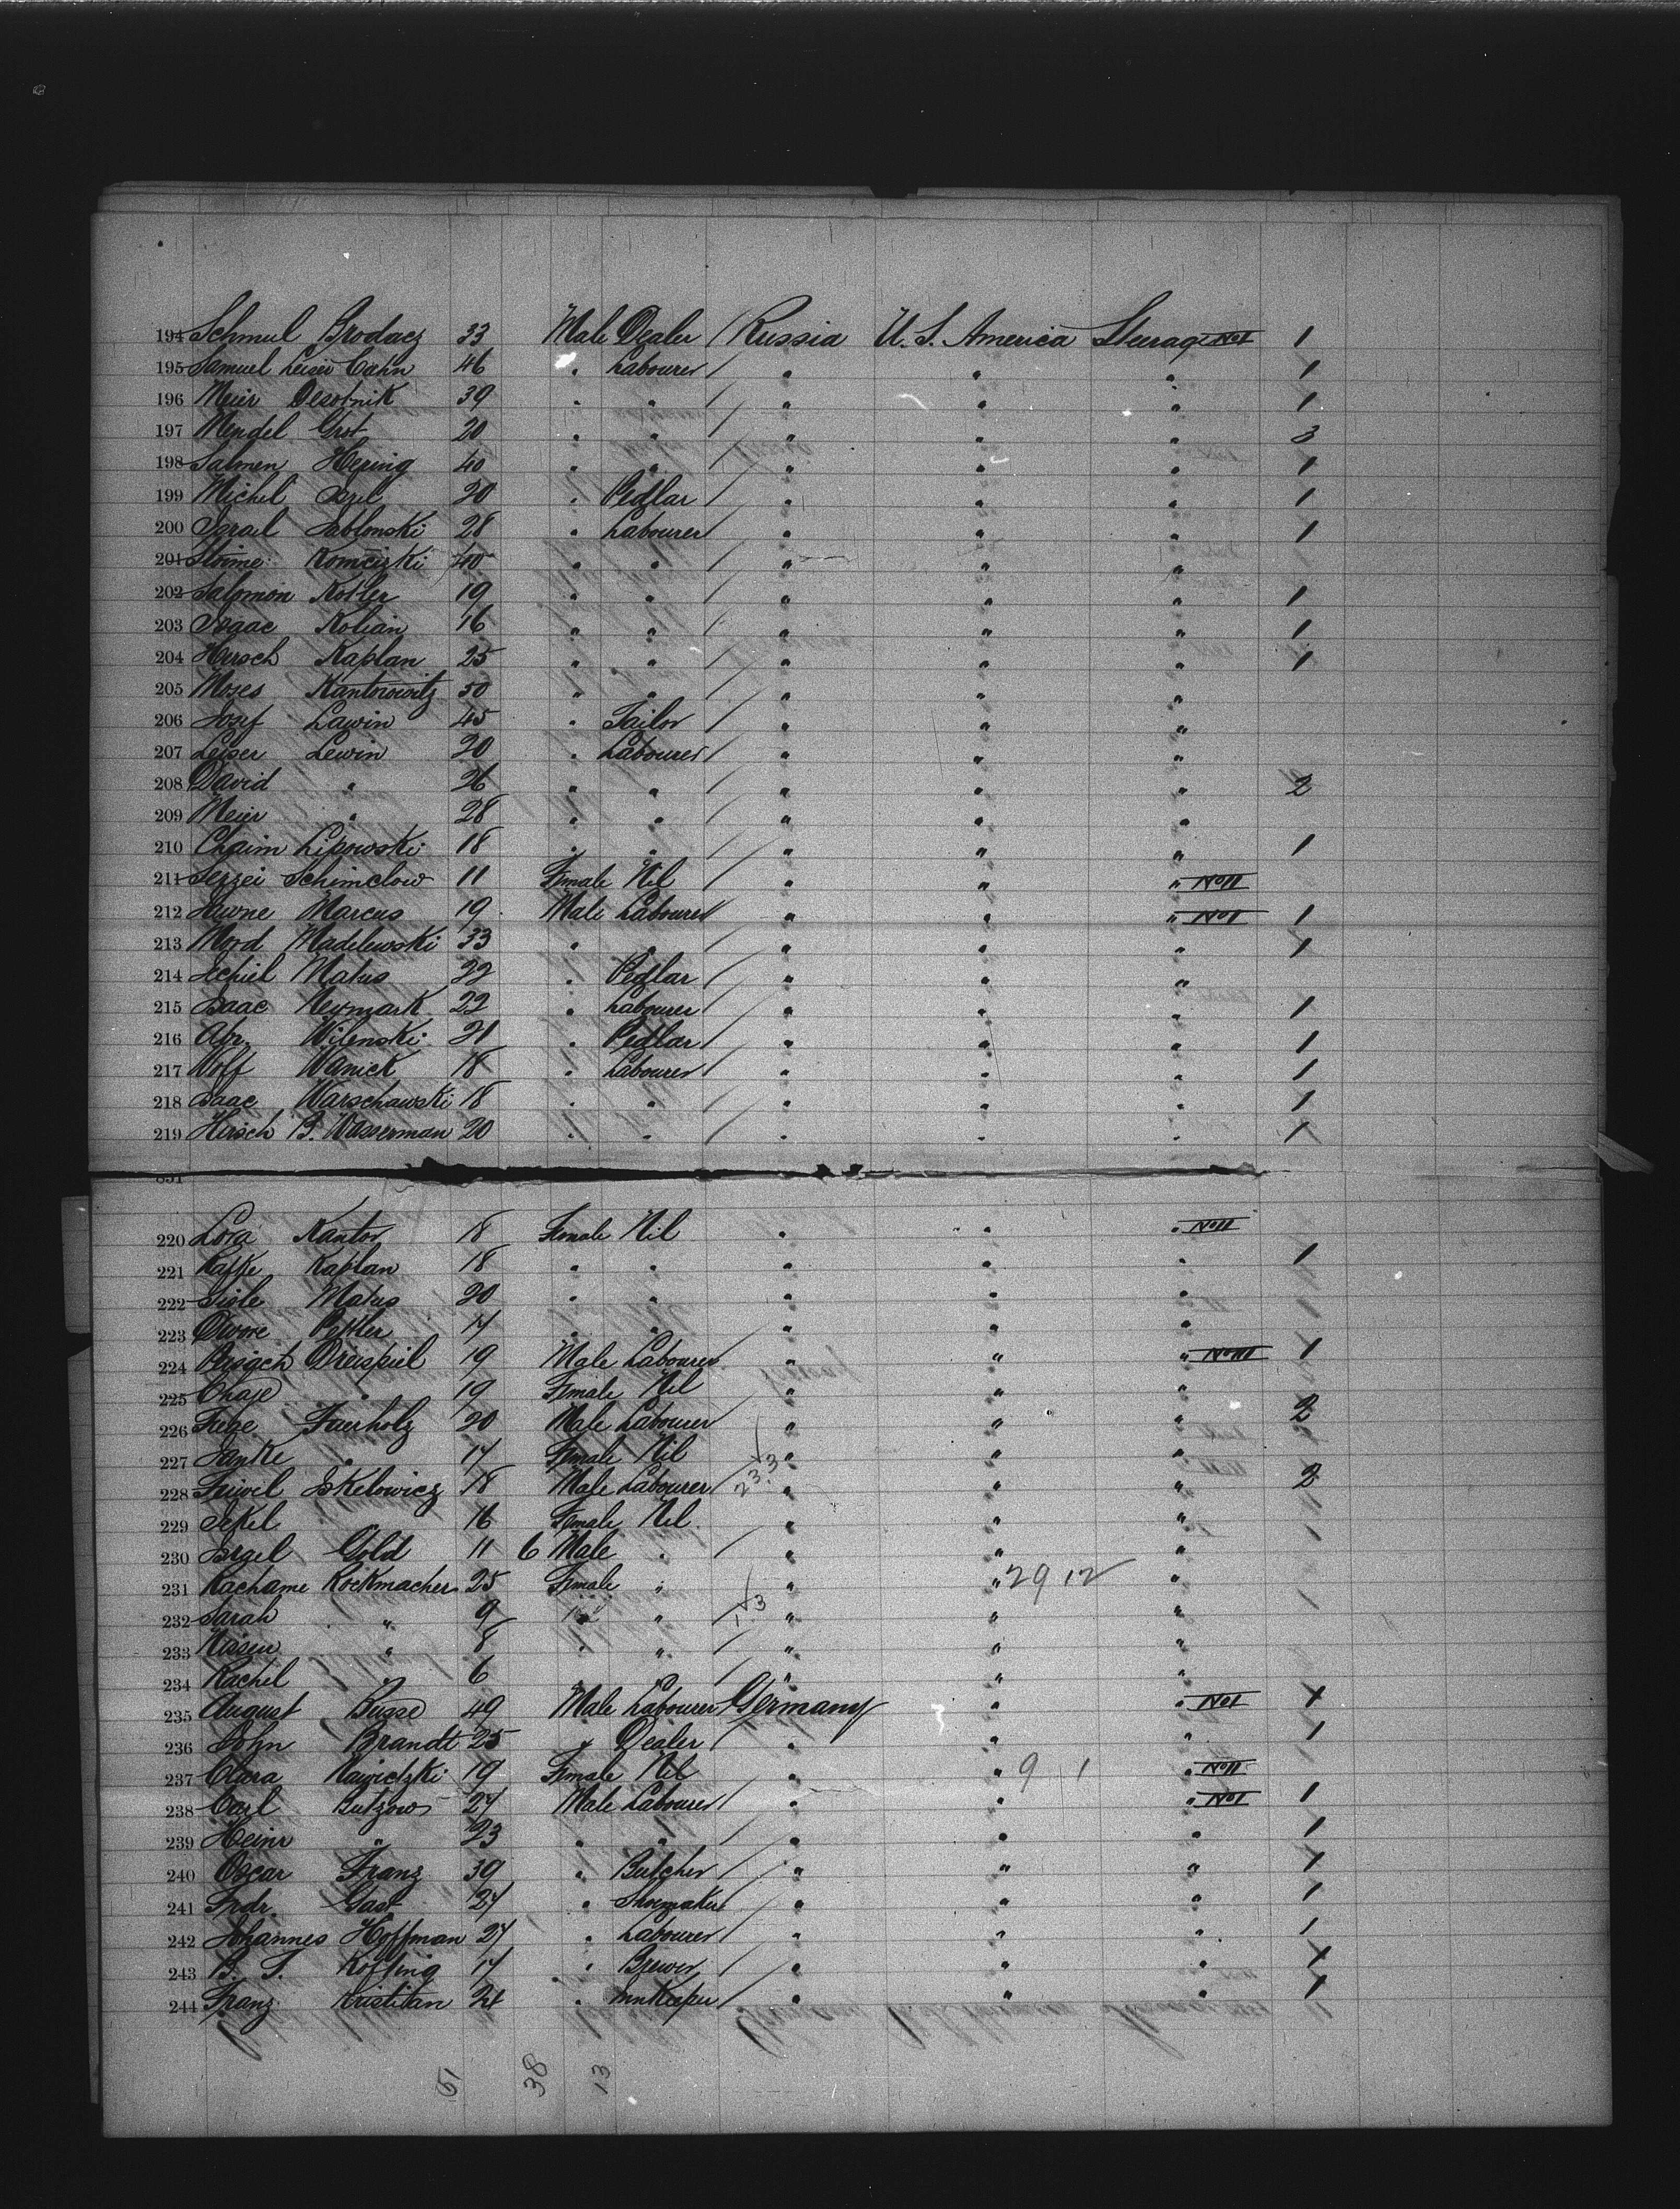 194 Schmul Brodacz 33 Male Dealer / Russia U. S. America Steerage No I 1
195 Samuel Leiser Cahn 46 " Labourer / " " " 1
196 Meier Desotnik 39 " " / " " " 1
197 Mendel Grot 20 " " / " " " 3
198 Salmen Hering 40 " " / " " " 1
199 Michel Isril 20 " Pedlar / " " " 1
200 Israil Jablonski 28 " Labourer / " " " 1
201 40 " " / " " "
202 Salomon Kotler 19 " " / " " " 1
203 Isaac Kolian 16 " " / " " " 1
204 Hirsch Kaplan 25 " " / " " " 1
205 Moses Kantorowitz 50 " " / " " "
206 Josef Lawin 45 " Tailor / " " "
207 Leiser Lewin 20 " Labourer / " " "
208 David " 26 " " / " " " 2
209 Meier " 28 " " / " " "
210 Chaim Lipowski 18 " " / " " " 1
211 Schimelow 11 Female Nil / " " " No II
212 Marcus 19 Male Labourer / " " " No I 1
213 Mord Madelewski 33 " " / " " " 1
214 Jechiel Matus 22 " Pedlar / " " "
215 Isaac Neymark 22 " Labourer / " " " 1
216 Abr. Wilenski 21 " Pedlar / " " " 1
217 Wolf Wanick 18 " Labourer / " " " 1
218 Isaac Warschawski 18 " " / " " " 1
219 Hirsch B. Wasserman 20 " " / " " " 1
831
220 Lora Kantor 18 Female Nil " " " No II
221 Kaplan 18 " " " " " 1
222 Sisle Matus 20 " " " " "
223 Dwore Pekler 17 " " " " "
224 Dreispiel 19 Male Labourer " " " No III 1
225 Chaje " 19 Female Nil " " "
226 Fuerholz 20 Male Labourer " " " 2
227 Janke " 17 Female Nil " " "
228 Feiwel Iskelowicz 18 Male Labourer / 233 " " " 2
229 Jekel 16 Female Nil " " "
230 Isrgel Gold 11 6 Male " / " " "
231 Rachame Rockmacher 25 Female " " " 29 12 "
232 Sarah " 9 " / 1 3 " " "
233 Nissen " 8 " " / " " "
234 Rachel " 6 " / " " "
235 August Busse 49 Male Labourer Germany " " No I 1
236 John Brandt 25 " Dealer / " " " 1
237 Clara Rawictzki 19 Female Nil " " 9 1 " No II
238 Carl Butzow 27 Male Labourer / " " " No I 1
239 Heinr " 23 " " / " " " 1
240 Oscar Franz 39 " Butcher / " " " 1
241 Frdr. Gast 27 " Shoemaker / " " " 1
242 Johannes Hoffman 27 " Labourer / " " " 1
243 B. J. Koffing 17 " Brewer / " " " 1
244 Franz Kristitan 21 " Innkeeper / " " " 1
51 38 13